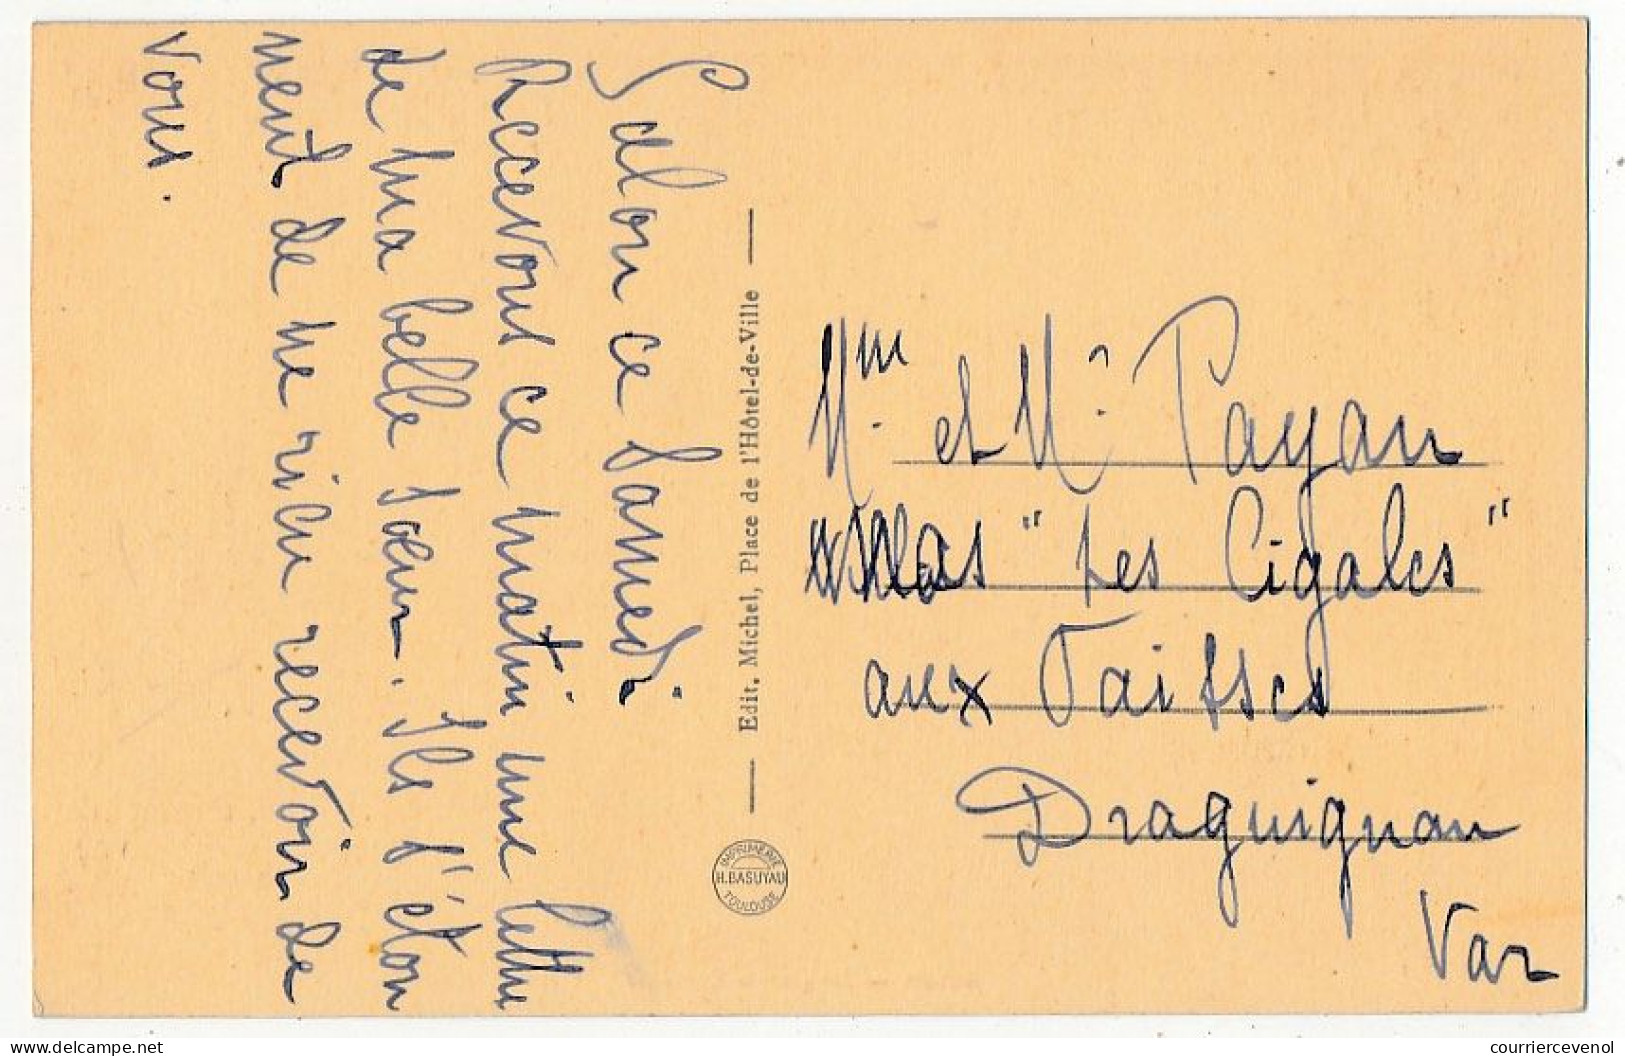 Salon ce samedi
Recevons ce matin une lettre
de ma belle sœur. Ils s'éton
nent de ne rien recevoir de
vous.
Edit. Michel, Place de l'Hôtel-de-Ville
IMPRIMERIE
H. BASUYAU
TOULOUSE
Mme et Mr Payan
"Les Cigales"
aux
Draguignan
Var
delcampe.net
courriercevenol